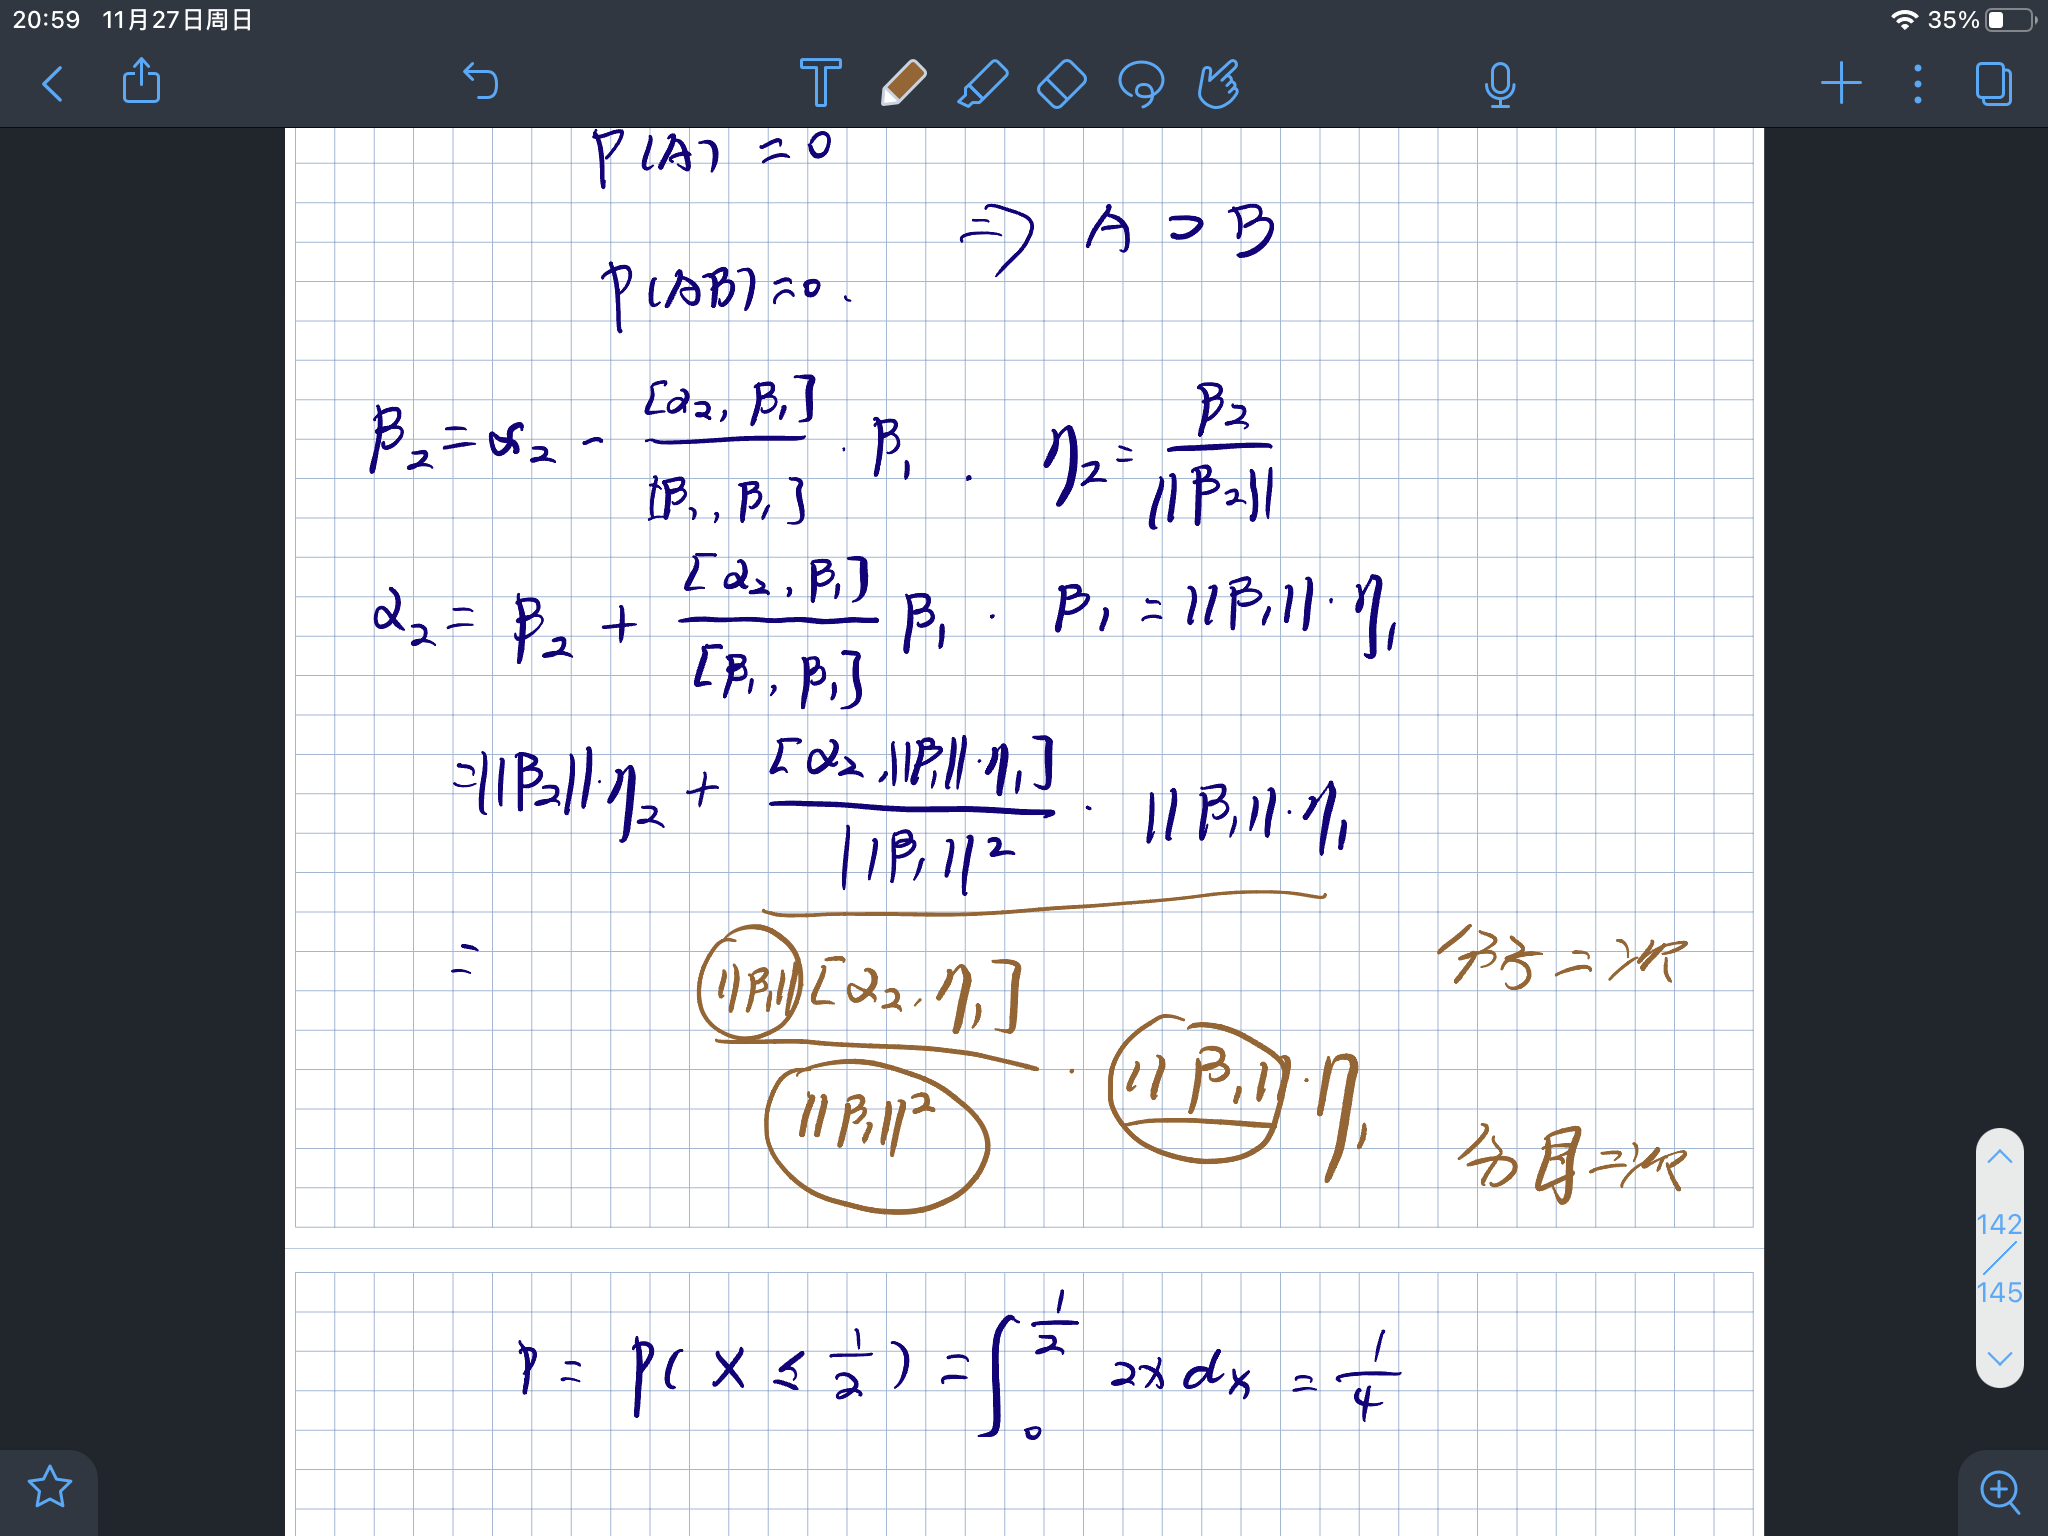 20:59 11月27日周日 35%
P(A) = 0
⇒ A ⊃ B
P(AB) = 0.
β₂ = α₂ - [α₂, β₁] / [β₁, β₁] · β₁ . η₂ = β₂ / ||β₂||
α₂ = β₂ + [α₂, β₁] / [β₁, β₁] β₁ . β₁ = ||β₁|| · η₁
= ||β₂|| · η₂ + [α₂, ||β₁|| · η₁] / ||β₁||² · ||β₁|| · η₁
= ||β₁|| [α₂, η₁] / ||β₁||² · ||β₁|| · η₁
分子二次
分母二次
142
145
P = P( X ≤ 1/2 ) = ∫₀^{1/2} 2x dx = 1/4